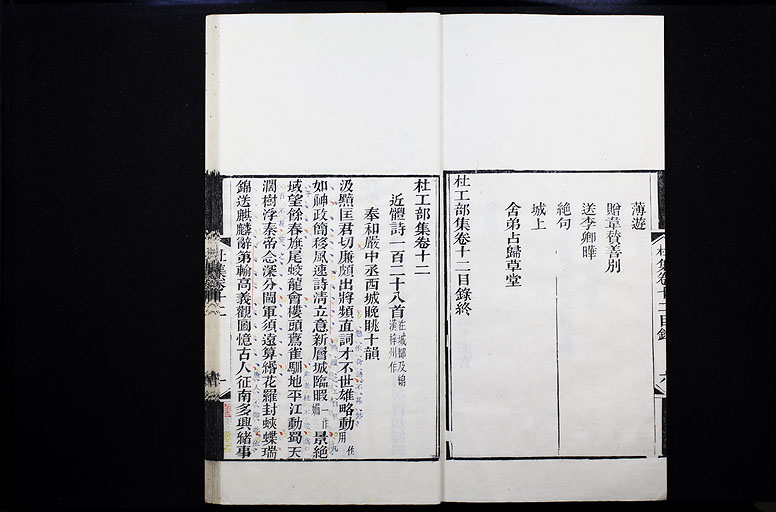 薄遊
贈韋贊善別
送李卿曄
絶句
城上
舍弟占歸草堂
杜工部集卷十二目錄終
杜工部集卷十二
近體詩一百二十八首在成都及綿漢梓州作
奉和嚴中丞西城晚眺十韻
汲黯匡君切廉頗出將頻直詞才不世雄略動一作用
如神政簡移風速詩清立意新層城臨暇一作媚景絶
域望餘春旗尾蛟龍會樓頭鷰雀馴地平江動蜀天
濶樹浮秦帝念深分閫軍須遠算緡花羅封蛺蝶瑞
錦送麒麟辭第輸高義觀圖憶古人征南多興緒事